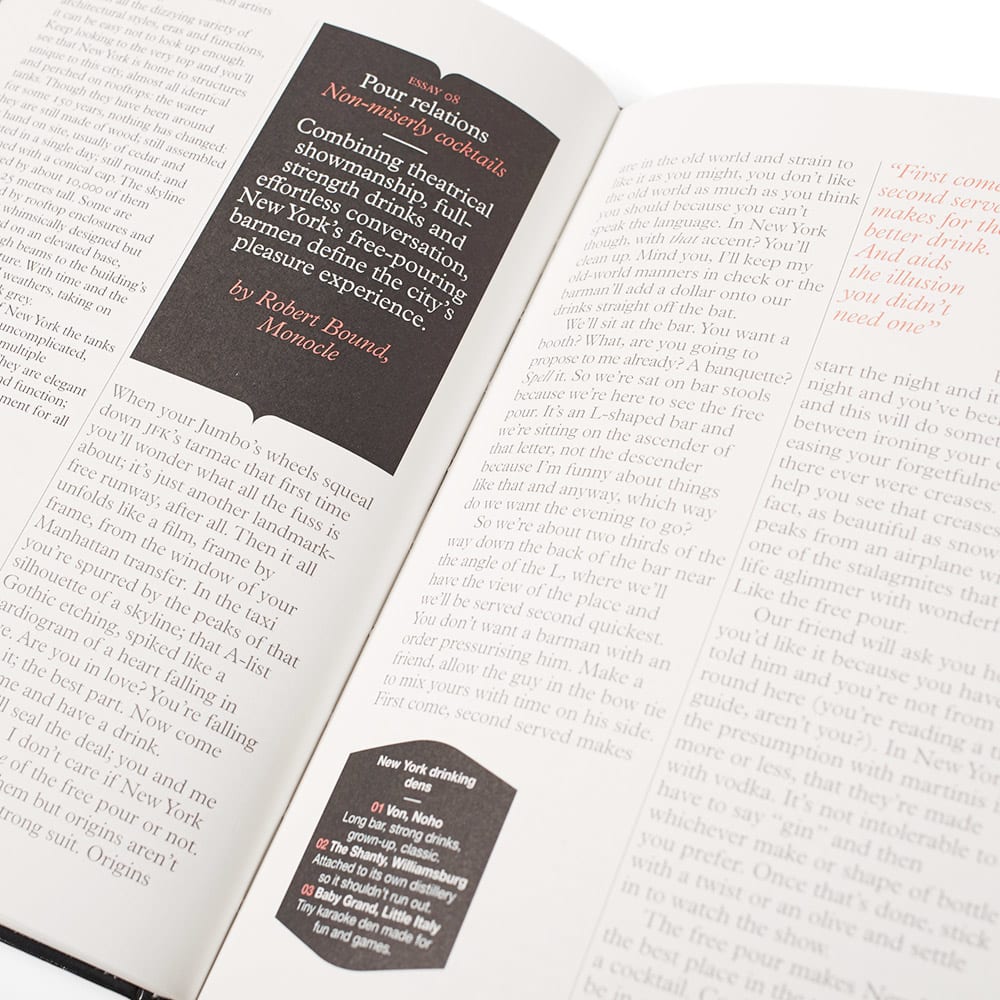 all the dizzying variety of
architectural styles, eras and functions,
it can be easy not to look up enough.
Keep looking to the very top and you'll
see that New York is home to structures
unique to this city, almost all identical
and perched on rooftops: the water
tanks. Though they have been around
for some 150 years, nothing has changed:
they are still made of wood; still assembled
hand on site, usually of cedar and
in a single day; still round; and
with a conical cap. The skyline
by about 10,000 of them
25 metres tall. Some are
by rooftop enclosures and
whimsically designed but
on an elevated base,
beams to the building's
With time and the
weathers, taking on
grey.
of New York the tanks
uncomplicated,
multiple
They are elegant
and function;
for all
ESSAY 08
Pour relations
Non-miserly cocktails
Combining theatrical
showmanship, full-
strength drinks and
effortless conversation,
New York's free-pouring
barmen define the city's
pleasure experience.
by Robert Bound,
Monocle
When your Jumbo's wheels squeal
down JFK's tarmac that first time
you'll wonder what all the fuss is
about; it's just another landmark-
free runway, after all. Then it all
unfolds like a film, frame by
frame, from the window of your
Manhattan transfer. In the taxi
you're spurred by the peaks of that
silhouette of a skyline; that A-list
Gothic etching, spiked like a
cardiogram of a heart falling in
Are you in love? You're falling
it; the best part. Now come
me and have a drink.
seal the deal; you and me
I don't care if New York
of the free pour or not.
them but origins aren't
strong suit. Origins
are in the old world and strain to
like it as you might, you don't like
the old world as much as you think
you should because you can't
speak the language. In New York
though, with that accent? You'll
clean up. Mind you, I'll keep my
old-world manners in check or the
barman'll add a dollar onto our
drinks straight off the bat.
We'll sit at the bar. You want a
booth? What, are you going to
propose to me already? A banquette?
Spell it. So we're sat on bar stools
because we're here to see the free
pour. It's an L-shaped bar and
we're sitting on the ascender of
that letter, not the descender
because I'm funny about things
like that and anyway, which way
do we want the evening to go?
So we're about two thirds of the
way down the back of the bar near
the angle of the L, where we'll
have the view of the place and
we'll be served second quickest.
You don't want a barman with an
order pressurising him. Make a
friend, allow the guy in the bow tie
to mix yours with time on his side.
First come, second served makes
New York drinking
dens
01 Von, Noho
Long bar, strong drinks,
grown-up, classic.
02 The Shanty, Williamsburg
Attached to its own distillery
so it shouldn't run out.
03 Baby Grand, Little Italy
Tiny karaoke den made for
fun and games.
"First come
second serve
makes for th
better drink.
And aids
the illusion
you didn't
need one"
start the night and it
night and you've been
and this will do some
between ironing your
easing your forgetfulne
there ever were creases.
help you see that creases
fact, as beautiful as snow
peaks from an airplane wi
one of the stalagmites that
life aglimmer with wonderf
Like the free pour.
Our friend will ask you h
you'd like it because you have
told him and you're not from
round here (you're reading a
guide, aren't you?). In New York
the presumption with martinis
more or less, that they're made
with vodka. It's not intolerable to
have to say "gin" and then
whichever make or shape of bottle
you prefer. Once that's done, stick
with a twist or an olive and settle
in to watch the show.
The free pour makes New
the best place in the
a cocktail.
be in